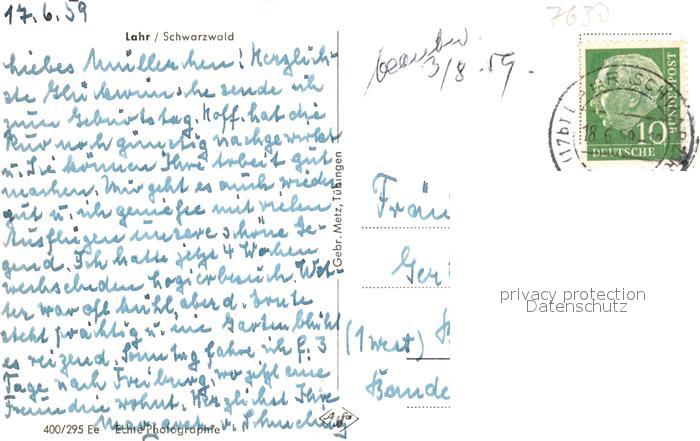 17.6.59
7630
Lahr / Schwarzwald
Liebes Müllerchen! Herzlich-
ste Glückwünsche sende ich
zum Geburtstag. Hoff. hat die
Kur noch günstig nachgewirkt
u. Sie können Ihre Arbeit gut
machen. Mir geht es auch wieder
gut u. ich genieße mit vielen
Ausflügen unsere schöne Ge-
gend. Ich hatte jetzt 4 Wochen
wechselnden Logierbesuch. Wet-
ter war oft kühl, aber d. Leute
steht prächtig u. im Garten blüht
es reizend. Sonntag fahre ich f. 3
Tage nach Freiburg, wo jetzt eine
Freundin wohnt. Herzlichst Ihre
Margaret v.
400/295 Ee Echte Photographie
Gebr. Metz, Tübingen
3/8.59
10
BUNDESPOST
DEUTSCHE
(17b) LAHR (SCHWARZW
18.6.59
Fräu
Ger
(1 West)
Bunde
privacy protection
Datenschutz